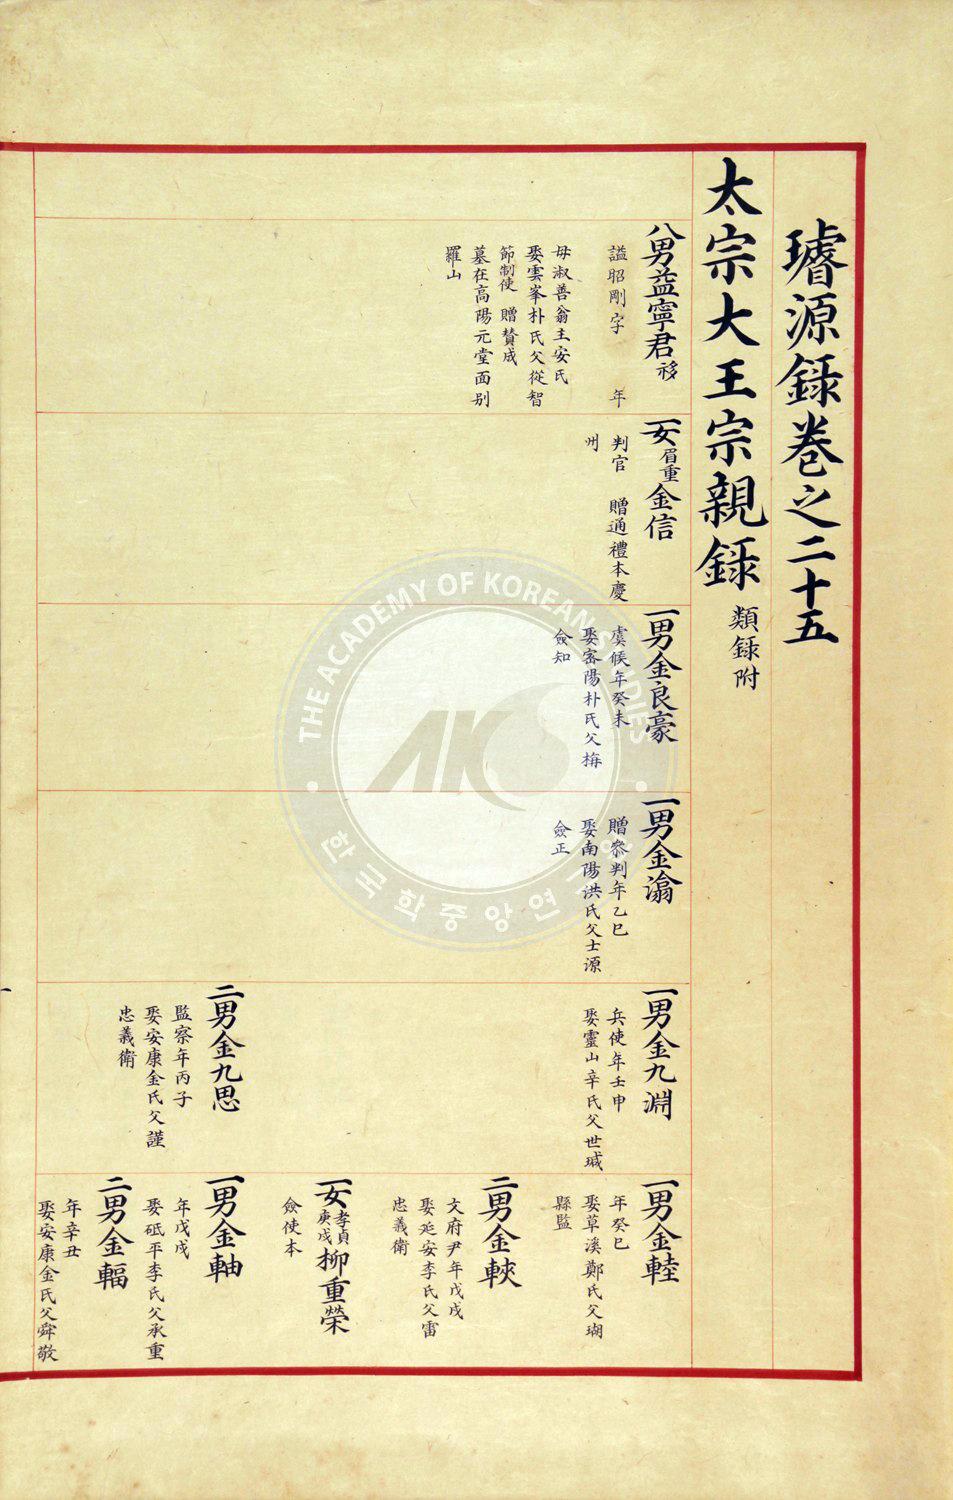 璿源錄卷之二十五
太宗大王宗親錄 類錄附
八男益寧君袳
諡昭剛字 年
母淑善翁主安氏
娶雲峯朴氏父從智
節制使 贈賛成
墓在高陽元堂面别
羅山
一女眉重金信
判官 贈通禮本慶
州
一男金良豪
虞候年癸未
娶密陽朴氏父栴
僉知
一男金瀹
贈叅判年乙巳
娶南陽洪氏父士源
僉正
一男金九淵
兵使年壬申
娶靈山辛氏父世瑊
二男金九思
監察年丙子
娶安康金氏父謹
忠義衛
一男金䡜
年癸巳
娶草溪鄭氏父瑚
縣監
二男金䡔
文府尹年戊戌
娶延安李氏父雷
忠義衛
一女孝貞庚戌柳重榮
僉使本
一男金軸
年戊戌
娶砥平李氏父承重
二男金輻
年辛丑
娶安康金氏父舜敬
THE ACADEMY OF KOREAN STUDIES
AKS
한국학중앙연구원